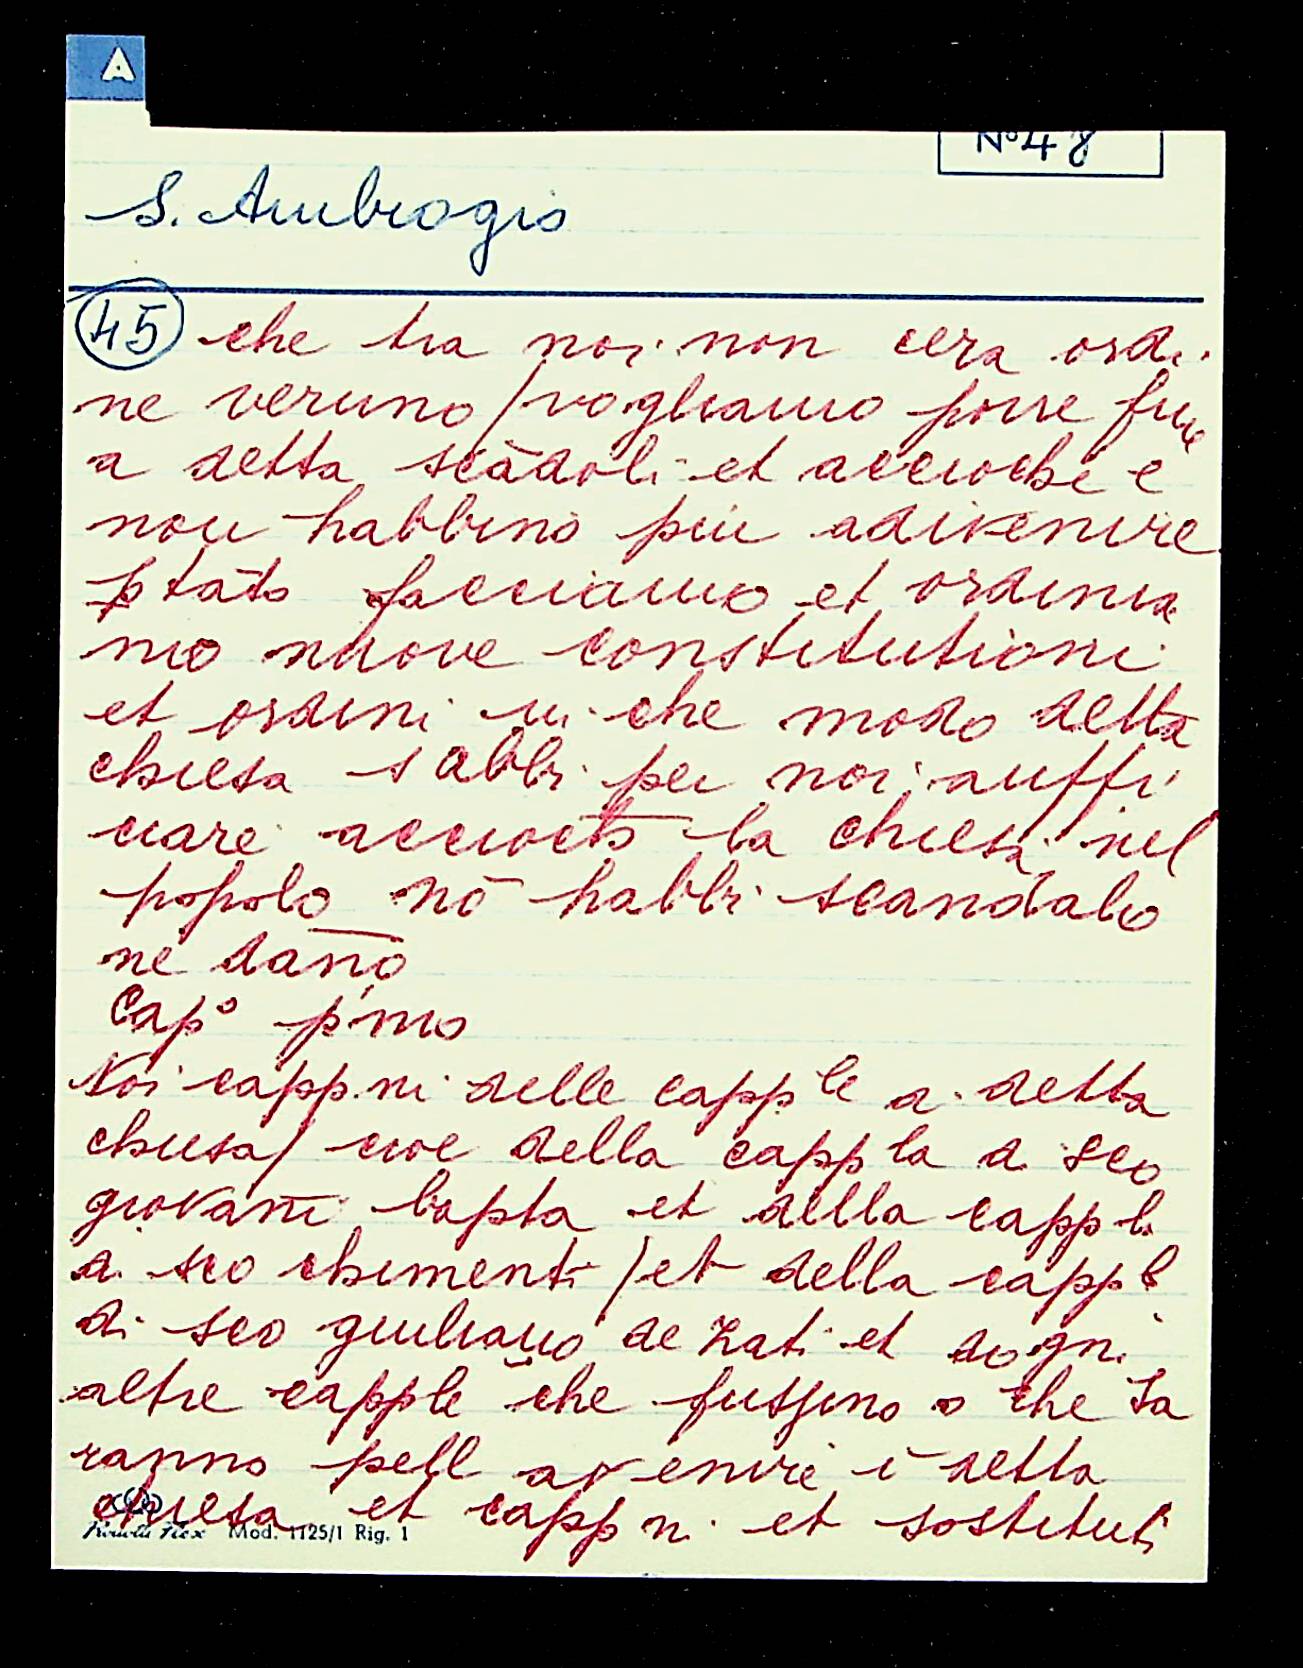 A
N° 48
S. Ambrogio
45 che tra noi non cera ordi
ne veruno / vogliamo porre fine
a detta scādoli et acciochè e
non habbino più adivenire
ptāto facciamo et ordinia
mo nuove constitutioni
et ordini in che modo detta
chiesa sabbi per noi auffi
ciare acciochè la chiesa nel
popolo nō habbi scandalo
nè danō
Cap° p'mo
Noi capp.ni delle capp le di detta
chiesa / cioe della capp la di sco
giovanī bapta et della capp la
di sco chimenti / et della capp la
di sco giuliano de Zati et dogni
altre capple che fussino o che sa
ranno pell avenire ī detta
chiesa et capp ni et sostituti
Mod. 1125/1 Rig. 1